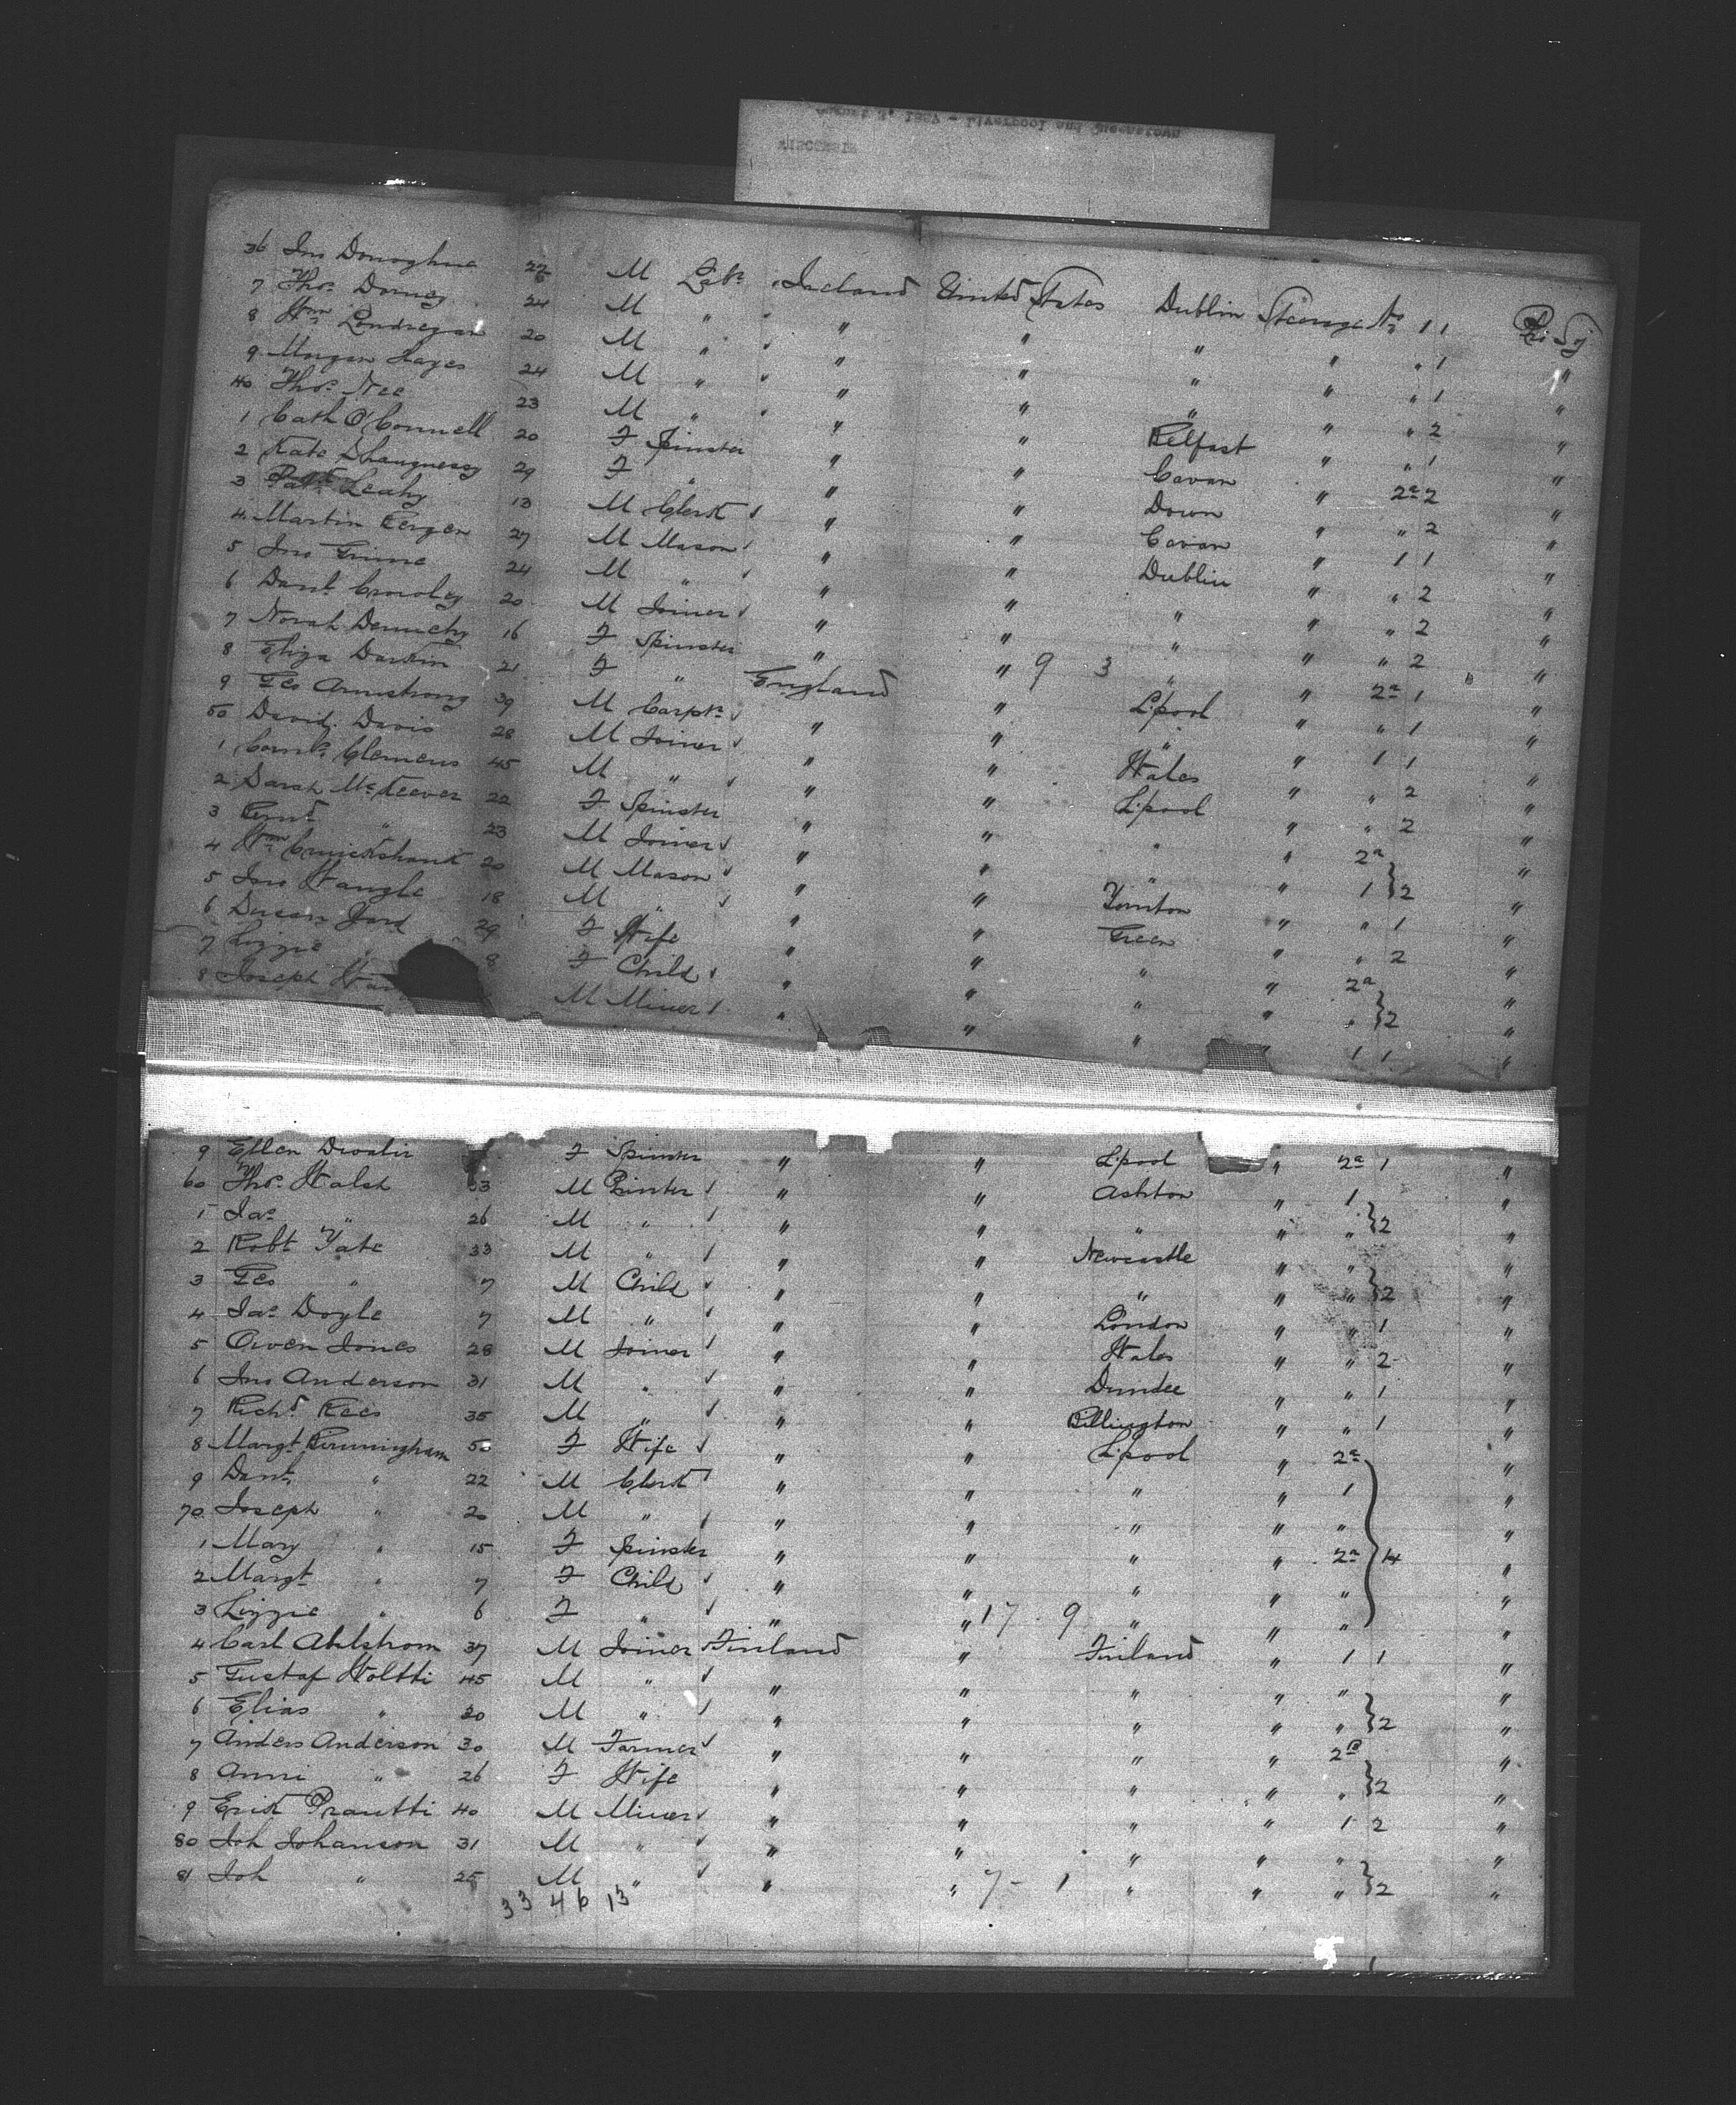 August 3, 1887 - Liverpool and Queenstown
WISCONSIN
36 Jno Donoghue 22 M Labr Ireland United States Dublin Steerage No 1 1
7 Thos Dorney 24 M " " " " " " 1 "
8 Wm Londregan 20 M " " " " " " 1 "
9 Morgan Hayes 24 M " " " " " " 2 "
40 Thos Nee 23 M " " " Belfast " " 1 "
1 Cath O'Connell 20 F Spinster " " Cavan " 2a 2 "
2 Kate Shaugnessy 29 F " " " Down " " 2 "
3 Patk Leahy 13 M Clerk " " Cavan " 1 1 "
4 Martin Bergen 27 M Mason " " Dublin " " 2 "
5 Jno Grime 24 M " " " " " " 2 "
6 Danl Crowley 20 M Joiner " " " " " 2 "
7 Norah Dennehy 16 F Spinster " " 9 3 " " 2a 1 "
8 Eliza Darkin 21 F " England " L'pool " " 1 "
9 Geo Armstrong 39 M Carptr " " " " 1 1 "
50 David Davis 28 M Joiner " " Wales " " 2 "
1 Cornls Clemens 45 M " " " L'pool " " 2 "
2 Sarah McKeever 22 F Spinster " " " " 2a "
3 Bernd " 23 M Joiner " " " " 1 } 2 "
4 Wm Cruickshank 20 M Mason " " " " 1 "
5 Jno Wangle 18 M " " " Green " " 2 "
6 Susan Yard 29 F Wife " " " " 2a "
7 Lizzie " 8 F Child " " " " " } 2 "
8 Joseph M Miner " " " 1 1 "
9 Ellen F Spinster " " L'pool " 2a 1 "
60 Thos Walsh 33 M Printer " " Ashton " 1 "
1 Jas " 26 M " " " " " " } 2 "
2 Robt Tate 33 M " " " Newcastle " " "
3 Geo " 7 M Child " " " " " } 2 "
4 Jas Doyle 7 M " " " London " " 1 "
5 Owen Jones 28 M Joiner " " Wales " " 2 "
6 Jno Anderson 31 M " " " Dundee " " 1 "
7 Richd Rees 35 M " " " Billington " " 1 "
8 Margt Bermingham 50 F Wife " " L'pool " 2a "
9 Danl " 22 M Clerk " " " " 1 "
70 Joseph " 20 M " " " " " " "
1 Mary " 15 F Spinster " " " " 2a } 4 "
2 Margt " 7 F Child " " " " " "
3 Lizzie " 6 F " " " 17 9 " " " "
4 Carl Ahlstrom 37 M Joiner Finland " Finland " 1 1 "
5 Gustaf Woltti 45 M " " " " " " "
6 Elias " 20 M " " " " " " } 2 "
7 Anders Anderson 30 M Farmer " " " " 2B "
8 Anni " 26 F Wife " " " " " } 2 "
9 Erik Prautti 40 M Miner " " " " 1 2 "
80 Joh Johanson 31 M " " " " " " "
81 Joh " 25 M " " " 7 - 1 " " " } 2 "
33 46 13